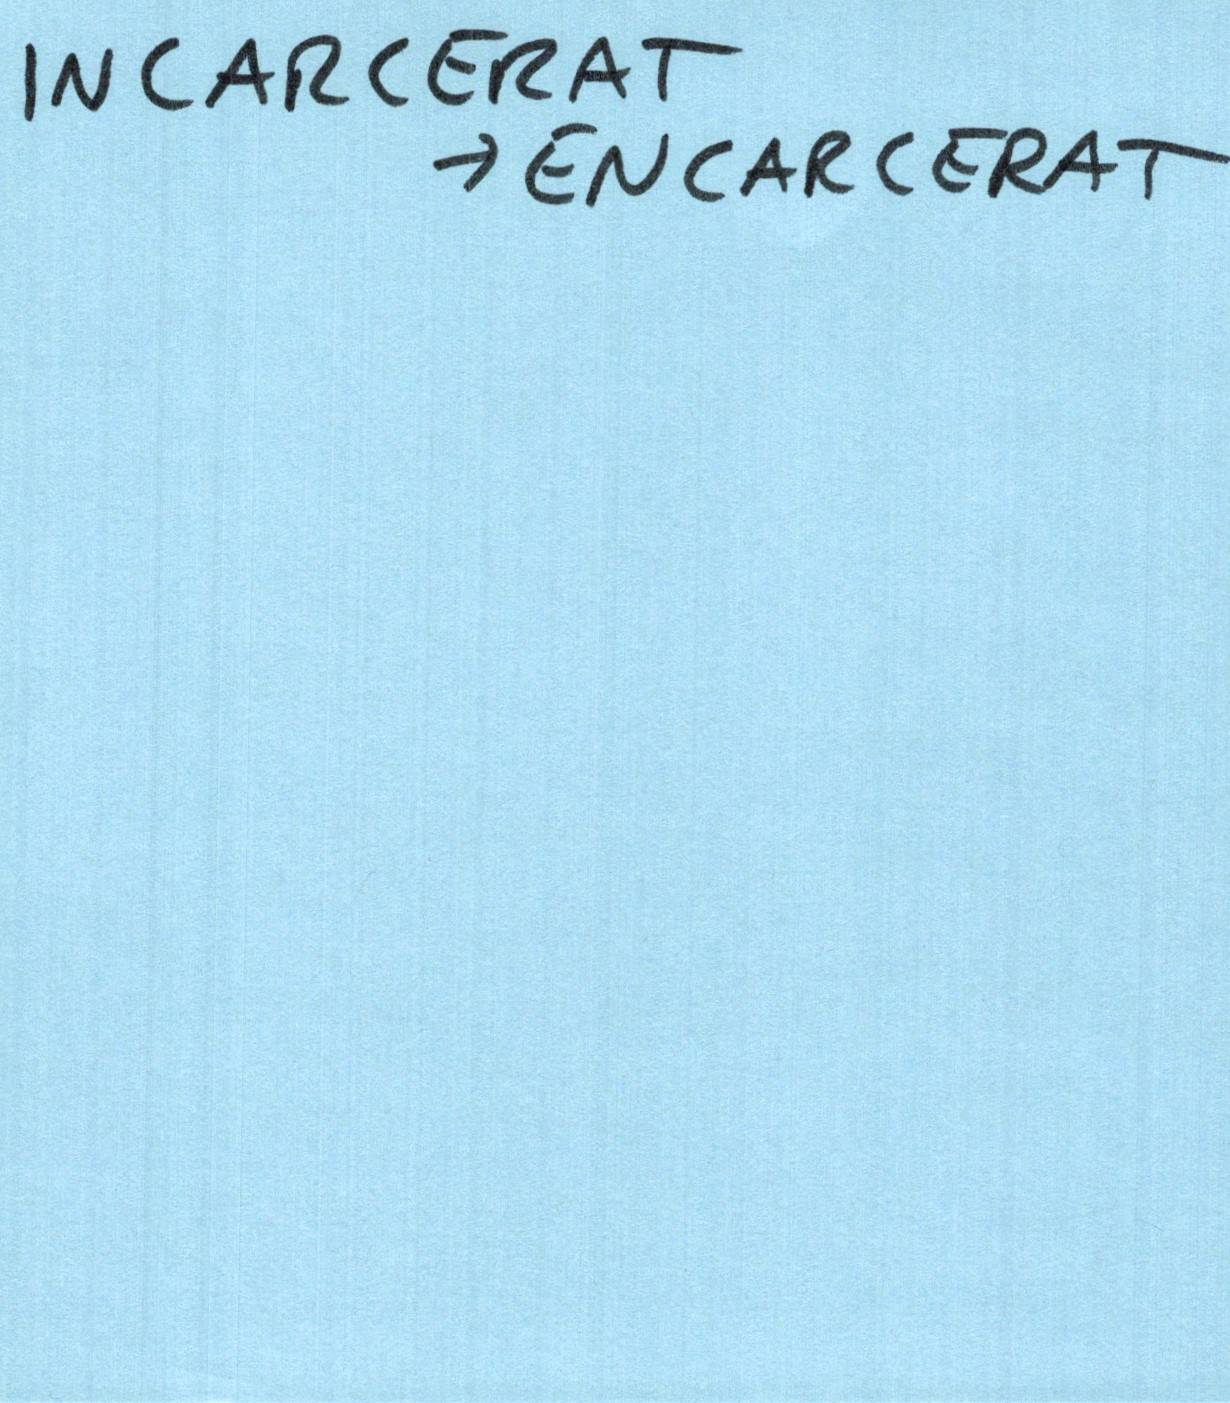 INCARCERAT
→ ENCARCERAT